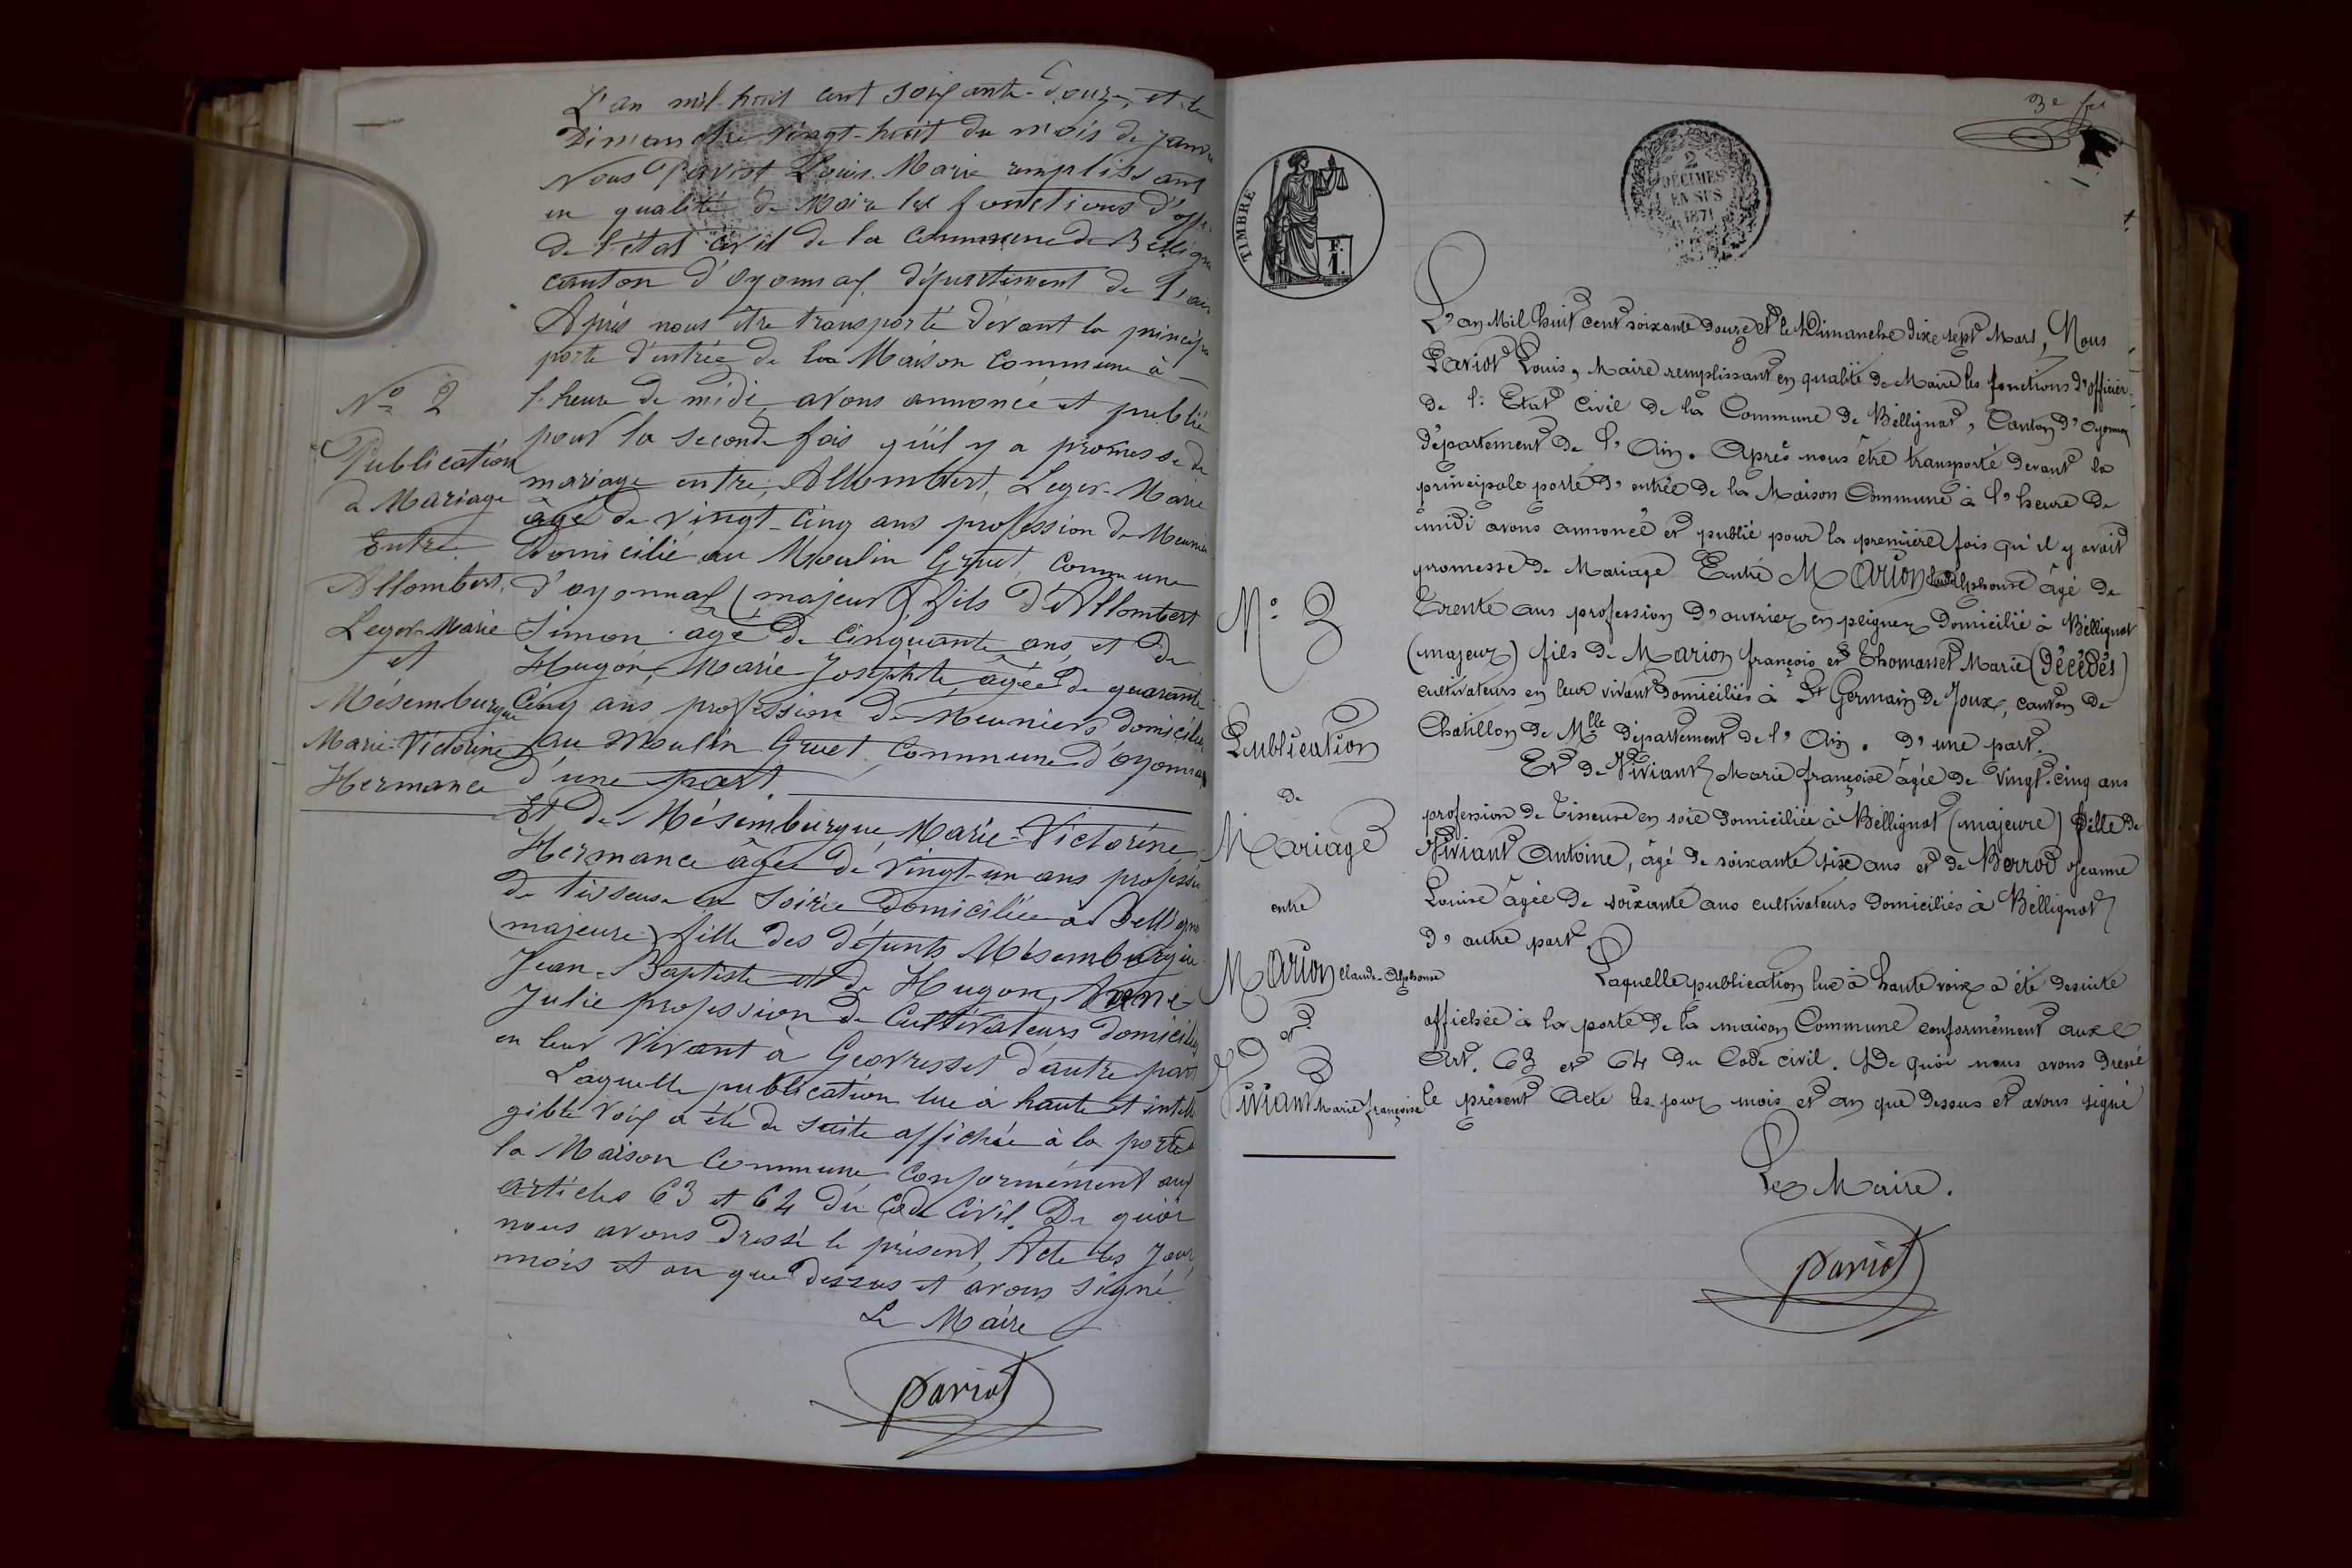 L'an mil huit cent soixante-douze, et le
Dimanche vingt-huit du mois de Janvi
Nous Pariot Louis Marie remplissant
en qualité de Maire les fonctions d'offi
de l'état civil de la commune de Bellign
canton d'Oyonnax, département de l'ain
Après nous être transporté devant la princip
porte d'entrée de la Maison Commune à
l'heure de midi, avons annoncé et publié
pour la seconde fois qu'il y a promesse de
mariage entre, Allombert, Leger-Marie
âgé de vingt-cinq ans profession de Meunier
Domicilié au Moulin Gruet, commune
d'oyonnax (majeur) fils d'Allombert
Simon âgé de cinquante ans, et de
Hugon, Marie Josephte, âgée de quarante
cinq ans profession de Meuniers domicilié
au Moulin Gruet, Commune d'oyonnax
d'une part.
Et de Mésemburgue, Marie-Victorine
Hermance âgée de vingt-un ans professi
de tisseuse en Soirie domiciliée à Bellign
(majeure) fille des défunts Mésemburgue
Jean-Baptiste et de Hugon, Anne-
Julie profession de Cultivateurs domicilié
en leur Vivant à Geovresset d'autre part
Laquelle publication lue à haute et intelli
gible voix a été de suite affichée à la porte
la Maison Commune, Conformément aux
articles 63 et 64 du Code Civil. De quoi
nous avons Dressé le présent, Acte les Jour,
mois et an que dessus et avons signé
Le Maire
Pariot
No 2
Publication
de Mariage
Entre
Allombert,
Leger-Marie
et
Mésemburgue
Marie-Victorine
Hermance
3e
TIMBRE
F.
I.
2
DÉCIMES
EN SUS
1871
L'an Mil huit cent soixante douze et le Dimanche dixe sept Mars, Nous
Pariot Louis, Maire remplissant en qualité de Maire les fonctions d'officier
de l'Etat Civil de la Commune de Béllignat, Canton d'Oyonnax
département de l'Ain. Après nous être transporté devant la
principale porte d'entrée de la Maison Commune à l'heure de
midi avons annoncé et publié pour la première fois qu'il y avait
promesse de Mariage Entre Marion Alphonse âgé de
trente ans profession d'ouvrier en peignes Domicilié à Béllignat
(majeur) fils de Marion françois et Thomasset Marie (Décédés)
cultivateurs en leur vivant Domiciliés à St Germain de Joux, canton de
Chatillon de Mlle département de l'Ain. D'une part.
Et de Viviant Marie françoise âgée de vingt-cinq ans
profession de Tisseuse en soie Domiciliée à Béllignat (majeure) fille de
Viviant Antoine, âgé de soixante six ans et de Berrod Jeanne
Louise âgée de soixante ans cultivateurs Domiciliés à Béllignat
d'autre part.
Laquelle publication lue à haute voix a été desuite
affichée à la porte de la maison Commune conformément aux
Art. 63 et 64 du Code civil. De quoi nous avons Dressé
le présent Acte les jour mois et an que Dessus et avons signé
Le Maire.
Pariot
No 3
Publication
de
Mariage
entre
Marion Claude-Alphonse
et
Viviant Marie françoise